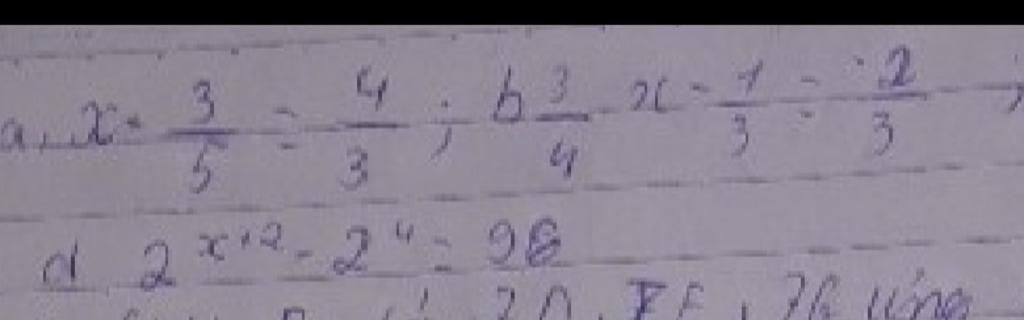 a, x · 3/5 = 4/3 ; b 3/4 x - 1/3 = 2/3 ;
d 2^{x+2} - 2^4 = 98